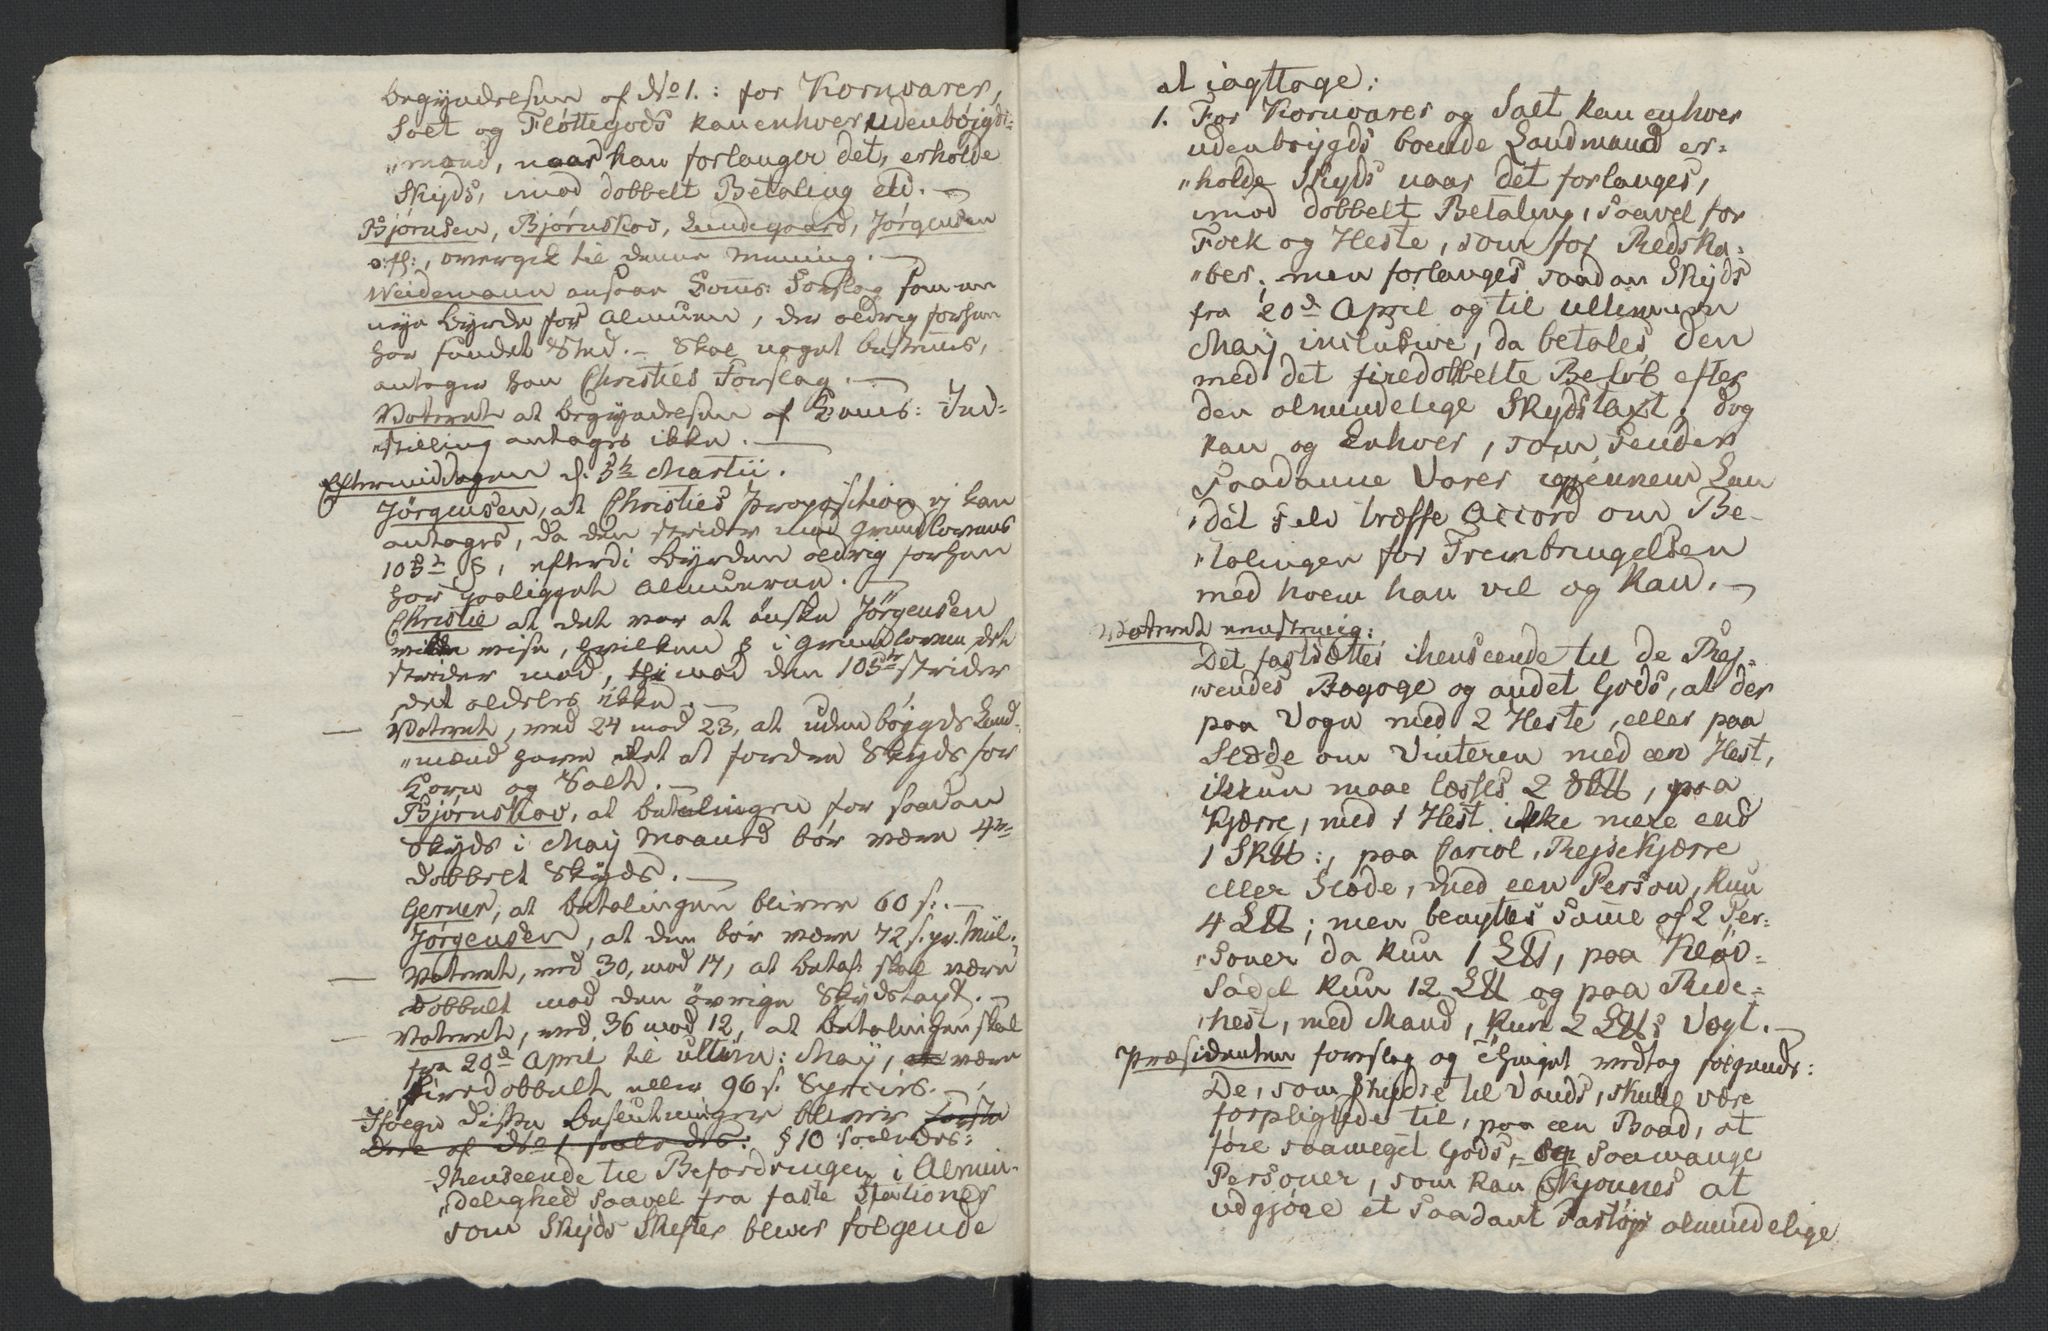 begyndelsen af No 1.: for Kornvarer,
Salt og Fløttegods kan enhver udenbøjgds-
"mand, naar han forlanger det, erholde
Skyds, imod dobbelt Betaling etc. —
Bjørnsen, Bjørnskov, Lundegaard, Jørgensen
o: fl:, overgik til denne Mening. —
Weidemann ansaae Coms: Forslag som en
nye byrde for Almuen, der aldrig forhen
har fundet Sted. — Skal noget bestemes,
antager han Christies Forslag. —
Voteret at begyndelsen af Coms: Ind-
"stilling antages ikke. —
Eftermiddagen d. 5te Martii.
Jørgensen, at Christies Proposition ej kan
antages, da den strider mod Grundlovens
105te §, efterdi byrden aldrig forhen
har paaligget Almuerne. —
Christie at det var at ønske Jørgensen
ville vise, hvilken § i Grundloven det
strider mod, thi mod den 105te strider
det aldeles ikke. —
— Voteret, med 24 mod 23, at uden bøjgds Land-
"mænd have Ret at fordre Skyds for
Korn og Salt. —
Bjørnskov, at betalingen for saadan
Skyds i Maij Maaned bør være 4re
dobbelt Skyds. —
Gerner, at betalingen bliver 60 s:. —
Jørgensen, at den bør være 72 s. pr. Miil.
— Voteret, med 30, mod 17, at betal: skal være
dobbelt mod den øvrige Skydstaxt. —
— Voteret, med 36 mod 12, at betalingen skal
fra 20de April til ultim: Maij, være
firedobbelt eller 96 s. Species. —
Ifølge disse beslutninger bliver første
Deel af No 1 saaledes: § 10 saaledes:
Ihenseende til Befordringen i Almin-
"delighed saavel fra faste Stationer
som Skyds Skifter bliver følgende
at iagttage:
1. For Kornvarer og Salt kan enhver
udenbøygds boende Landmand er-
"holde Skyds naar det forlanges,
imod dobbelt Betaling, saavel for
Folk og Heste, som for Redska-
"ber. men forlanges saadan Skyds
fra 20de April og til ultimum
Maij inclusive, da betales den
med det firedobbelte Beløb efter
den almindelige Skydstaxt, dog
kan og Enhver, som sender
saadanne Varer igjennem Lan
"det selv træffe Accord om Be-
"talingen for Frembringelsen
med hvem han vil og kan. —
Voteret eenstemig:
Det fastsættes ihenseende til de Rej-
"sendes Bagage og andet Gods, at der
paa Vogn med 2 Heste, eller paa
Slæde om Vinteren med een Hest,
ikkun maae læsses 2 S℔, paa
Kjærre, med 1 Hest ikke mere end
1 Sk℔:, paa Cariol, Rejsekjærre
eller Slæde, med een Person, kun
4 L℔; men benyttes same af 2 Per-
"soner da kun 1 L℔, paa Kløv-
sadel kun 12 L℔ og paa Ride-
"hest, med Mand, kun 2 L℔s Vægt. —
Præsidenten foreslog og Thinget vedtog følgende:
De, som skydse til Vands, skulle være
forpligtede til, paa een Baad, at
føre saameget Gods, og saamange
Personer, som kan skjønnes at
udgjøre et saadant Fartøjs almindelige